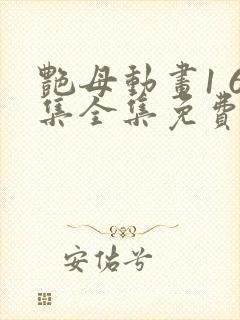 艷母動畫1 6
集全集免費
安佑兮